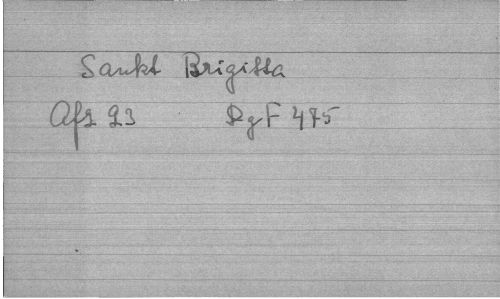 Sankt Brigitta
Afs 93 RgF 475